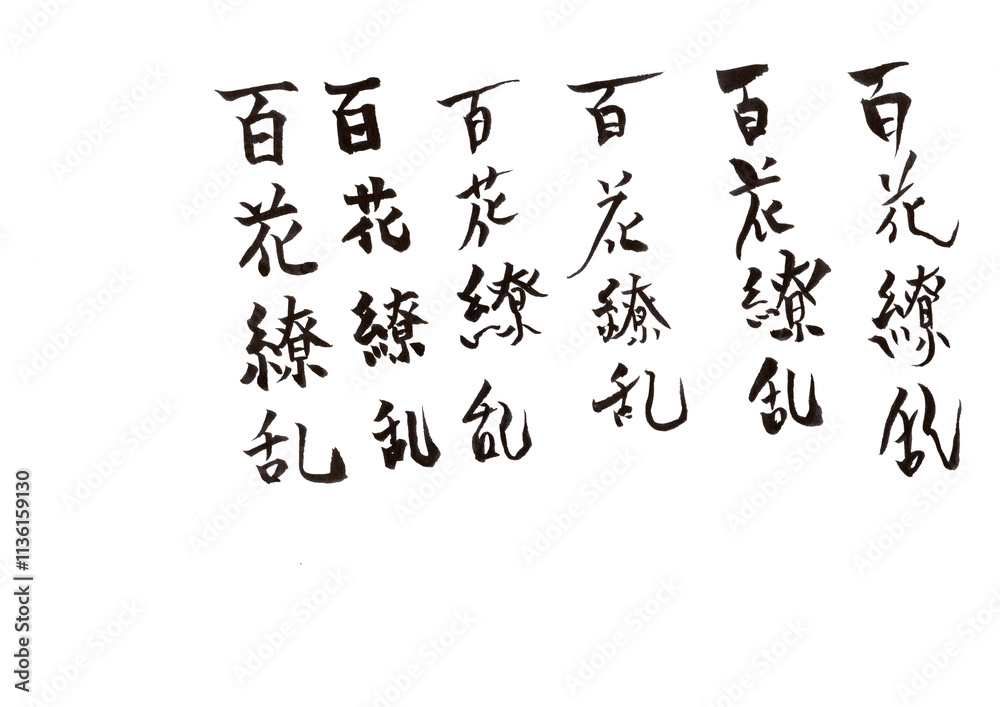 百花繚乱
百花繚乱
百花繚乱
百花繚乱
百花繚乱
百花繚乱
Adobe Stock | #1136159130